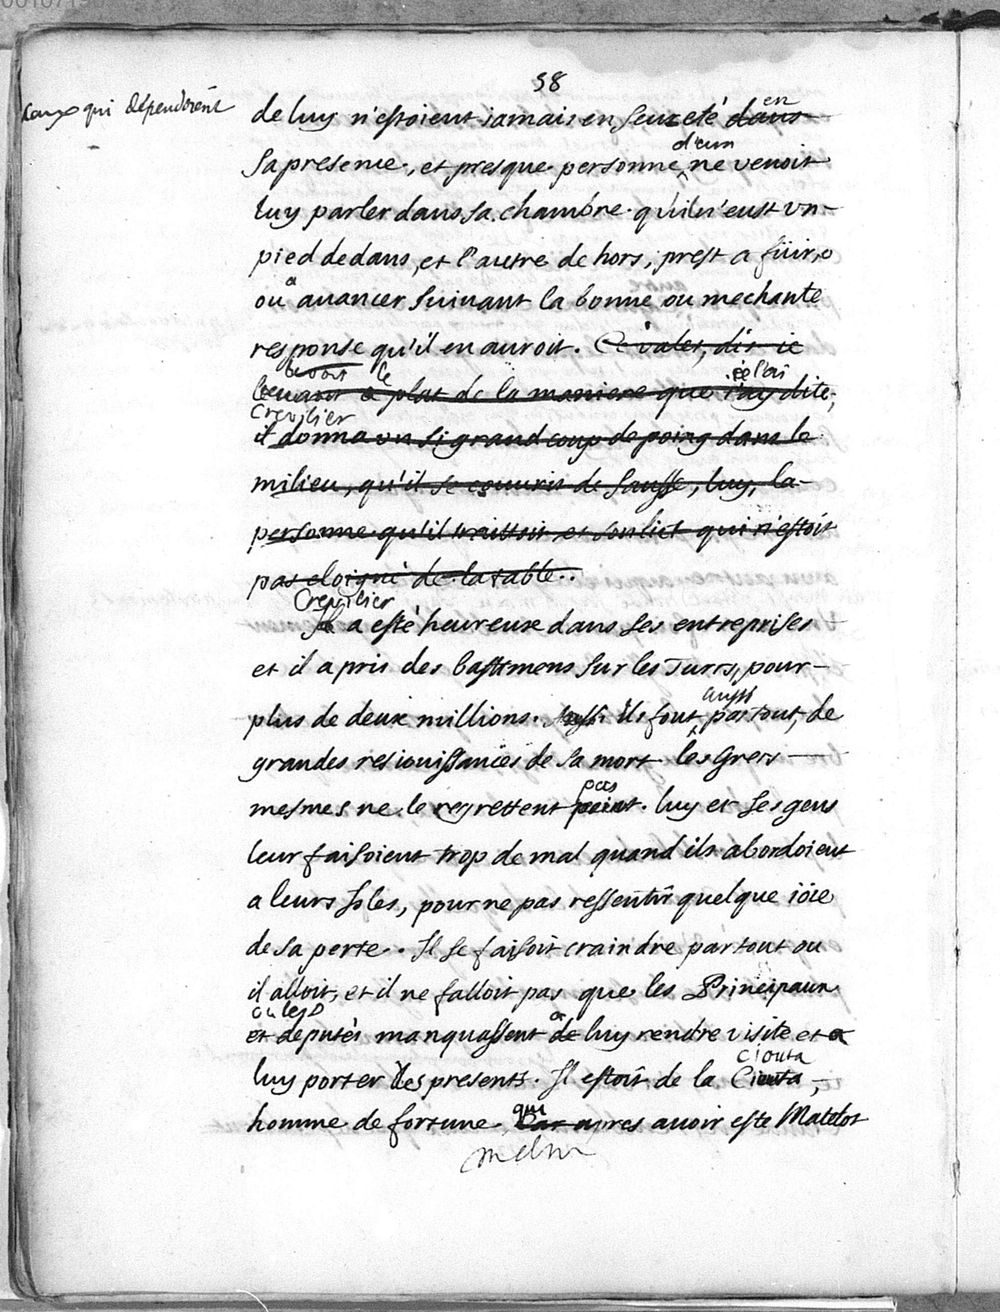 38
ceux qui dépendoient
de luy n'estoient iamais en seureté dans en
sa presence, et presque personne d'eux ne venoit
luy parler dans sa chambre qu'il n'eust vn
pied dedans, et l'autre dehors, prest a fuir,
ou a auancer suiuant la bonne ou mechante
response qu'il en auroit. Ce valet, dis ie
leuant le plat de la maniere que i'ay dite,
Creuilier
il donna vn si grand coup de poing dans le
milieu, qu'il se couurit de sausse, luy, la
personne qu'il traittoit et son lict qui n'estoit
pas eloigné de la table.
Creuilier
Il a esté heureux dans ses entreprises
et il a pris des bastimens sur les Turcs, pour
plus de deux millions. Aussi ils font aussi partout, de
grandes resiouissances de sa mort les Grecs
mesmes ne le regrettent point pas. luy et ses gens
leur faisoient trop de mal quand ils abordoient
a leurs Isles, pour ne pas ressentir quelque ioie
de sa perte. Il se faisoit craindre partout ou
il alloit, et il ne falloit pas que les Principaux
ou les
et deputés manquassent de a luy rendre visite et a
luy porter des presents. Il estoit de la Ciouta Ciouta,
homme de fortune. qui Car apres auoir este Matelot